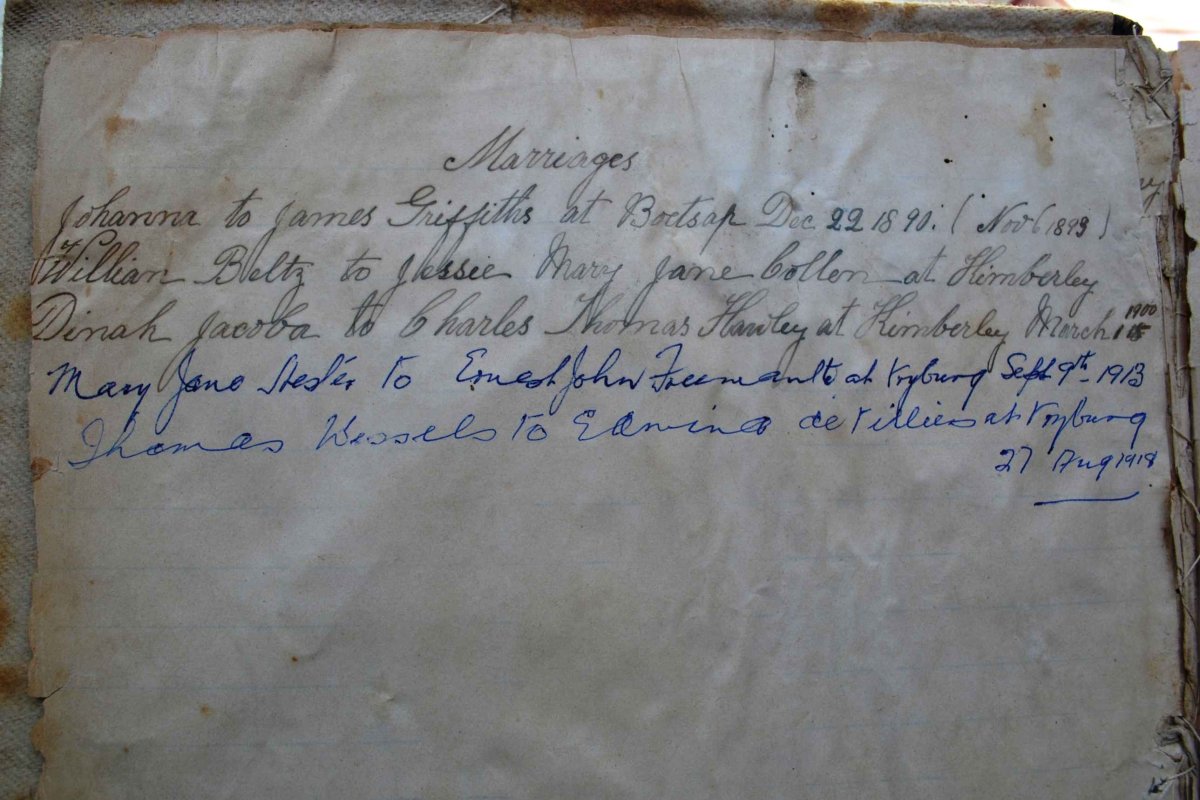 Marriages
Johanna to James Griffiths at Boetsap Dec 22 1890. (Nov 6 1893)
William Beltz to Jessie Mary Jane Collen at Kimberley
Dinah Jacoba to Charles Thomas Hawley at Kimberley March 1900
Mary Jane Hester to Ernest John Freemantle at Vryburg Sept 9th 1913
Thomas Wessels to Edwina de Villiers at Vryburg
27 Aug 1918